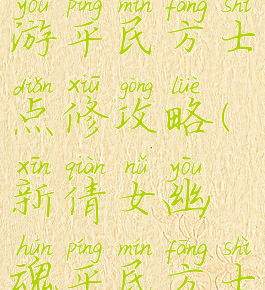 yóu píng mín fāng shì
游平民方士
diǎn xiū gōng lüè
点修攻略(
xīn qiàn nǚ yōu
新倩女幽
hún píng mín fāng shì
魂平民方士